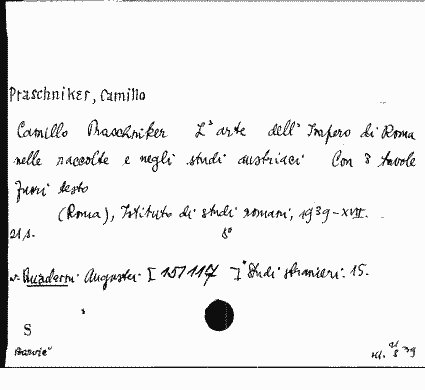 Praschniker, Camillo
Camillo Praschniker L'arte dell'Impero di Roma
nelle raccolte e negli studi austriaci Con 8 tavole
fuori testo
(Roma), Istituto di studi romani, 1939-XVII.
21 s. 8°
Quaderni Augustei [157117] Studi stranieri. 15.
S